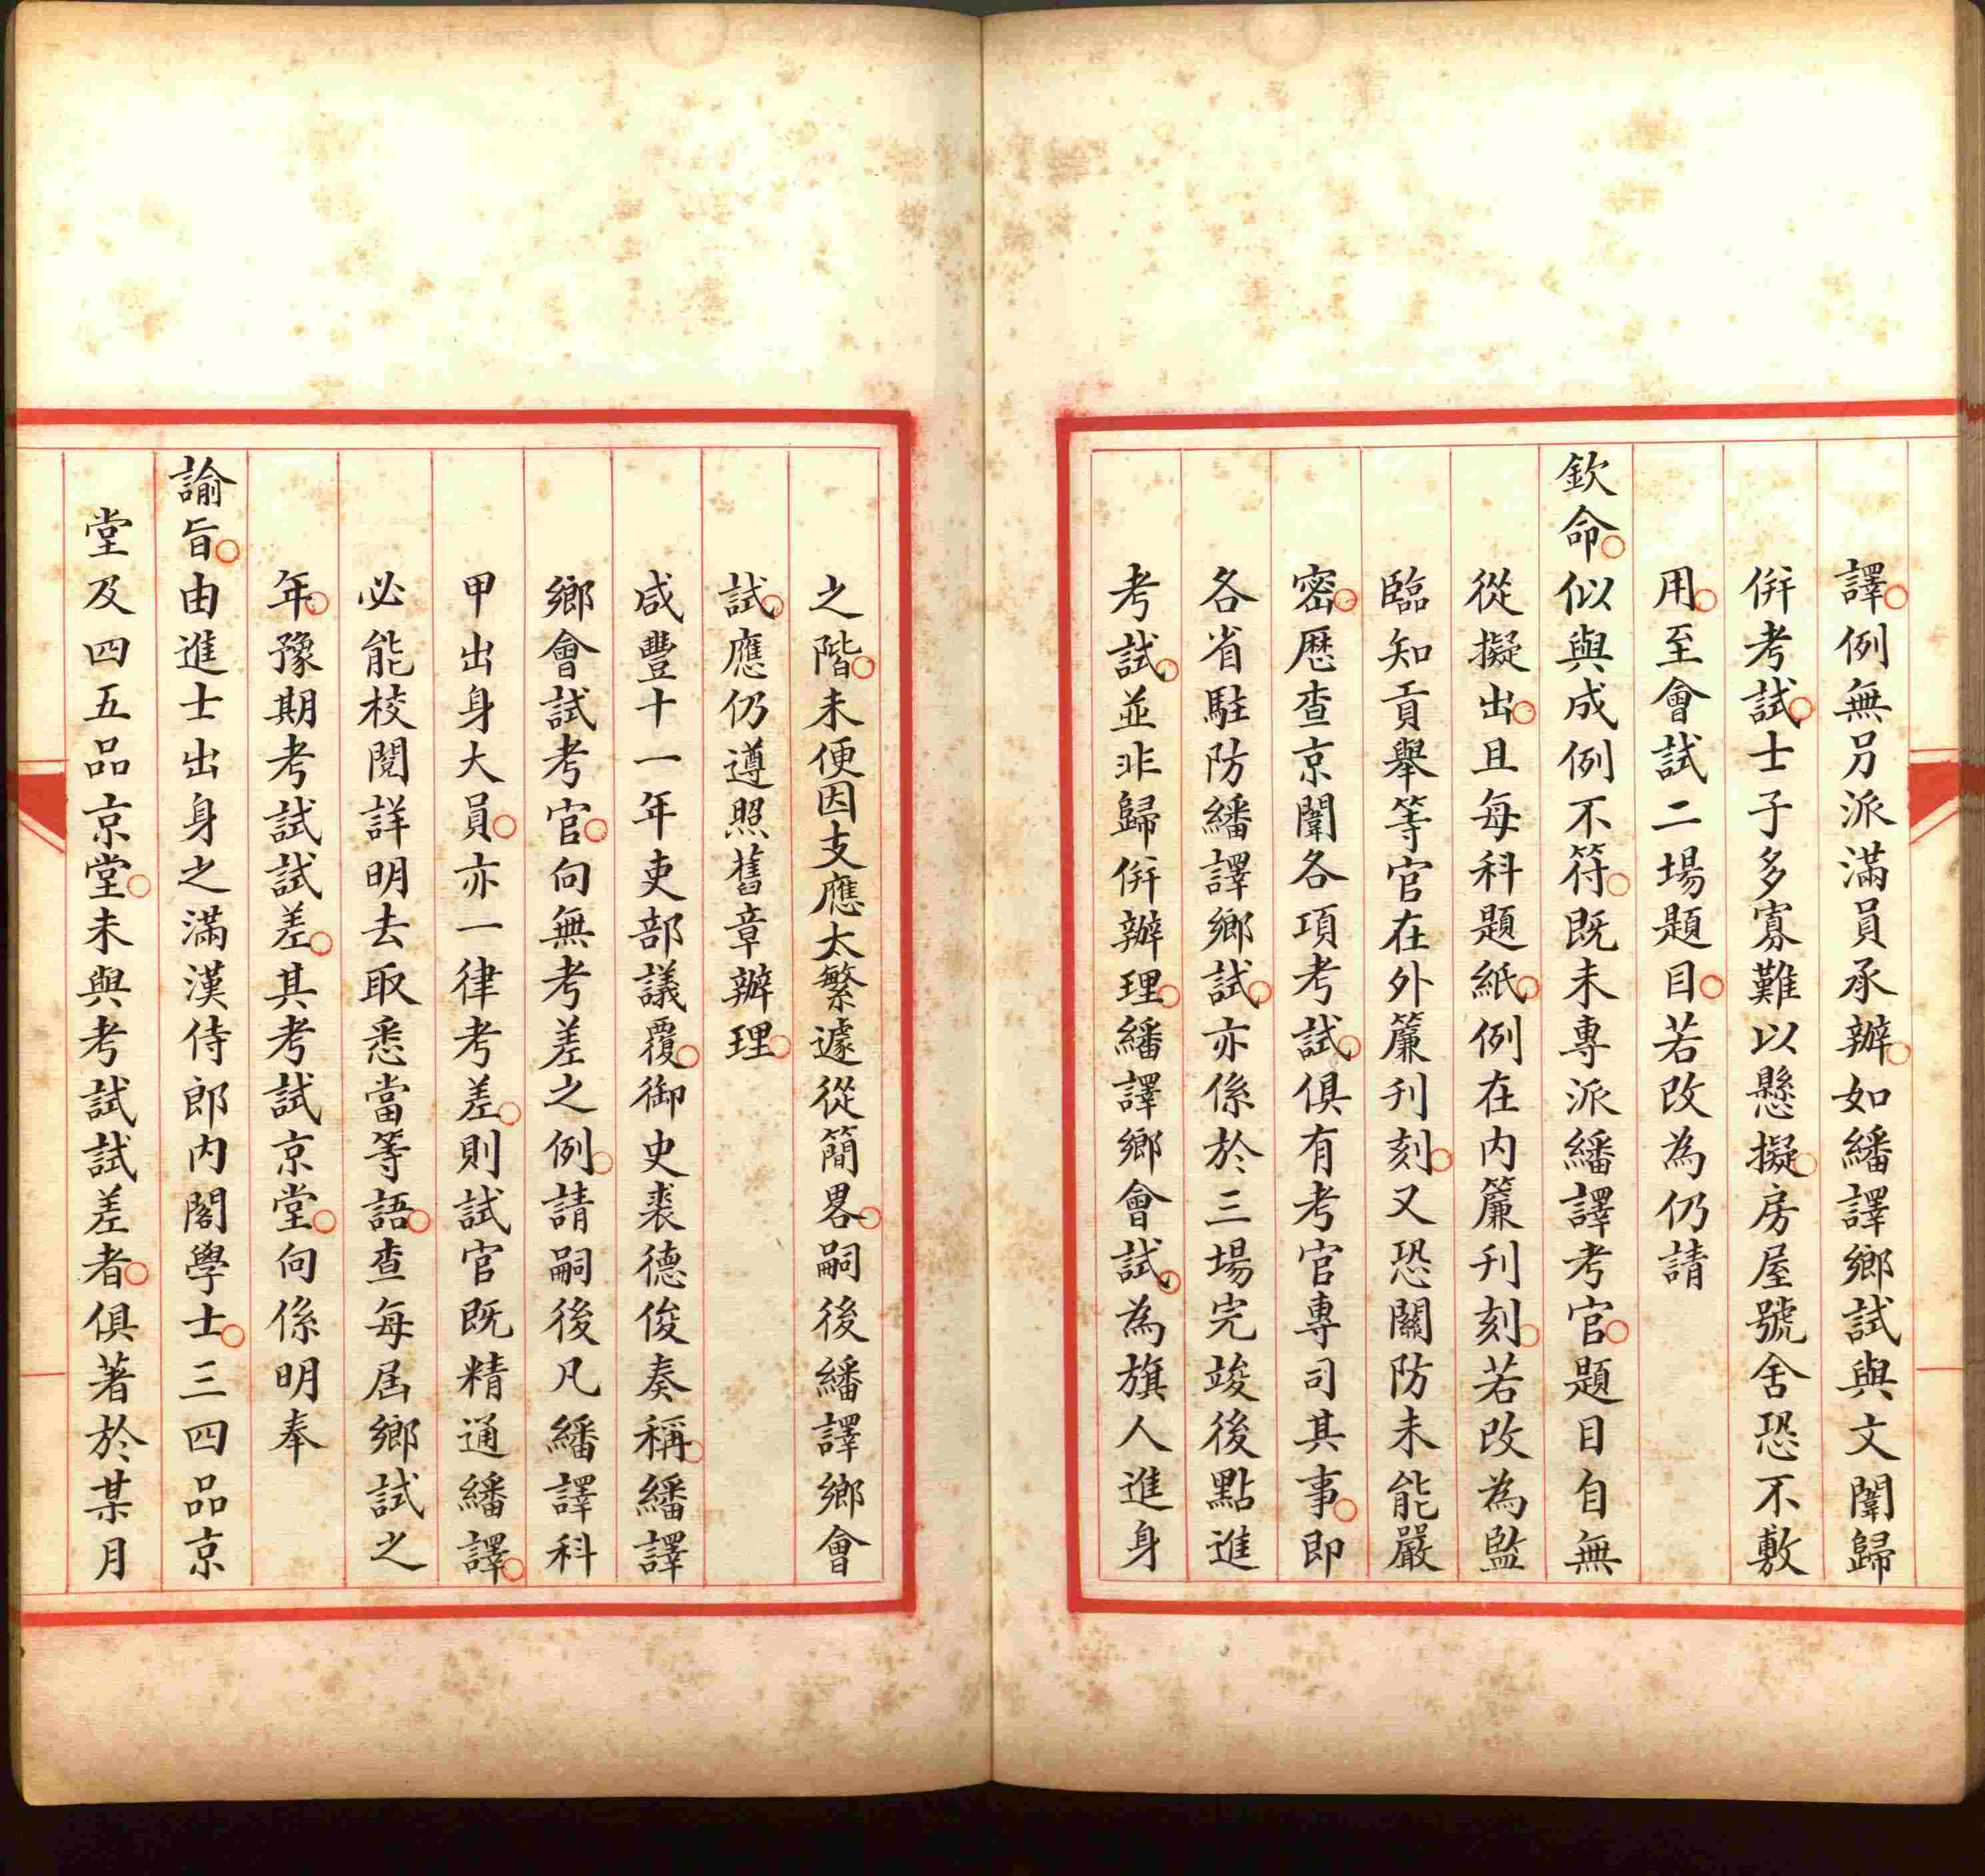 譯例無另派滿員承辦如繙譯鄉試與文闈歸
併考試士子多寡難以懸擬房屋號舍恐不敷
用至會試二場題目若改為仍請
欽命似與成例不符既未專派繙譯考官題目自無
從擬出且每科題紙例在内簾刊刻若改為監
臨知貢舉等官在外簾刊刻又恐關防未能嚴
密歷查京闈各項考試俱有考官專司其事即
各省駐防繙譯鄉試亦係於三場完竣後點進
考試並非歸併辦理繙譯鄉會試為旗人進身
之階未便因支應太繁遽從簡畧嗣後繙譯鄉會
試應仍遵照舊章辦理
咸豐十一年吏部議覆御史裘德俊奏稱繙譯
鄉會試考官向無考差之例請嗣後凡繙譯科
甲出身大員亦一律考差則試官既精通繙譯
必能校閱詳明去取悉當等語查每屆鄉試之
年豫期考試試差其考試京堂向係明奉
諭旨由進士出身之滿漢侍郎内閣學士三四品京
堂及四五品京堂未與考試試差者俱著於某月